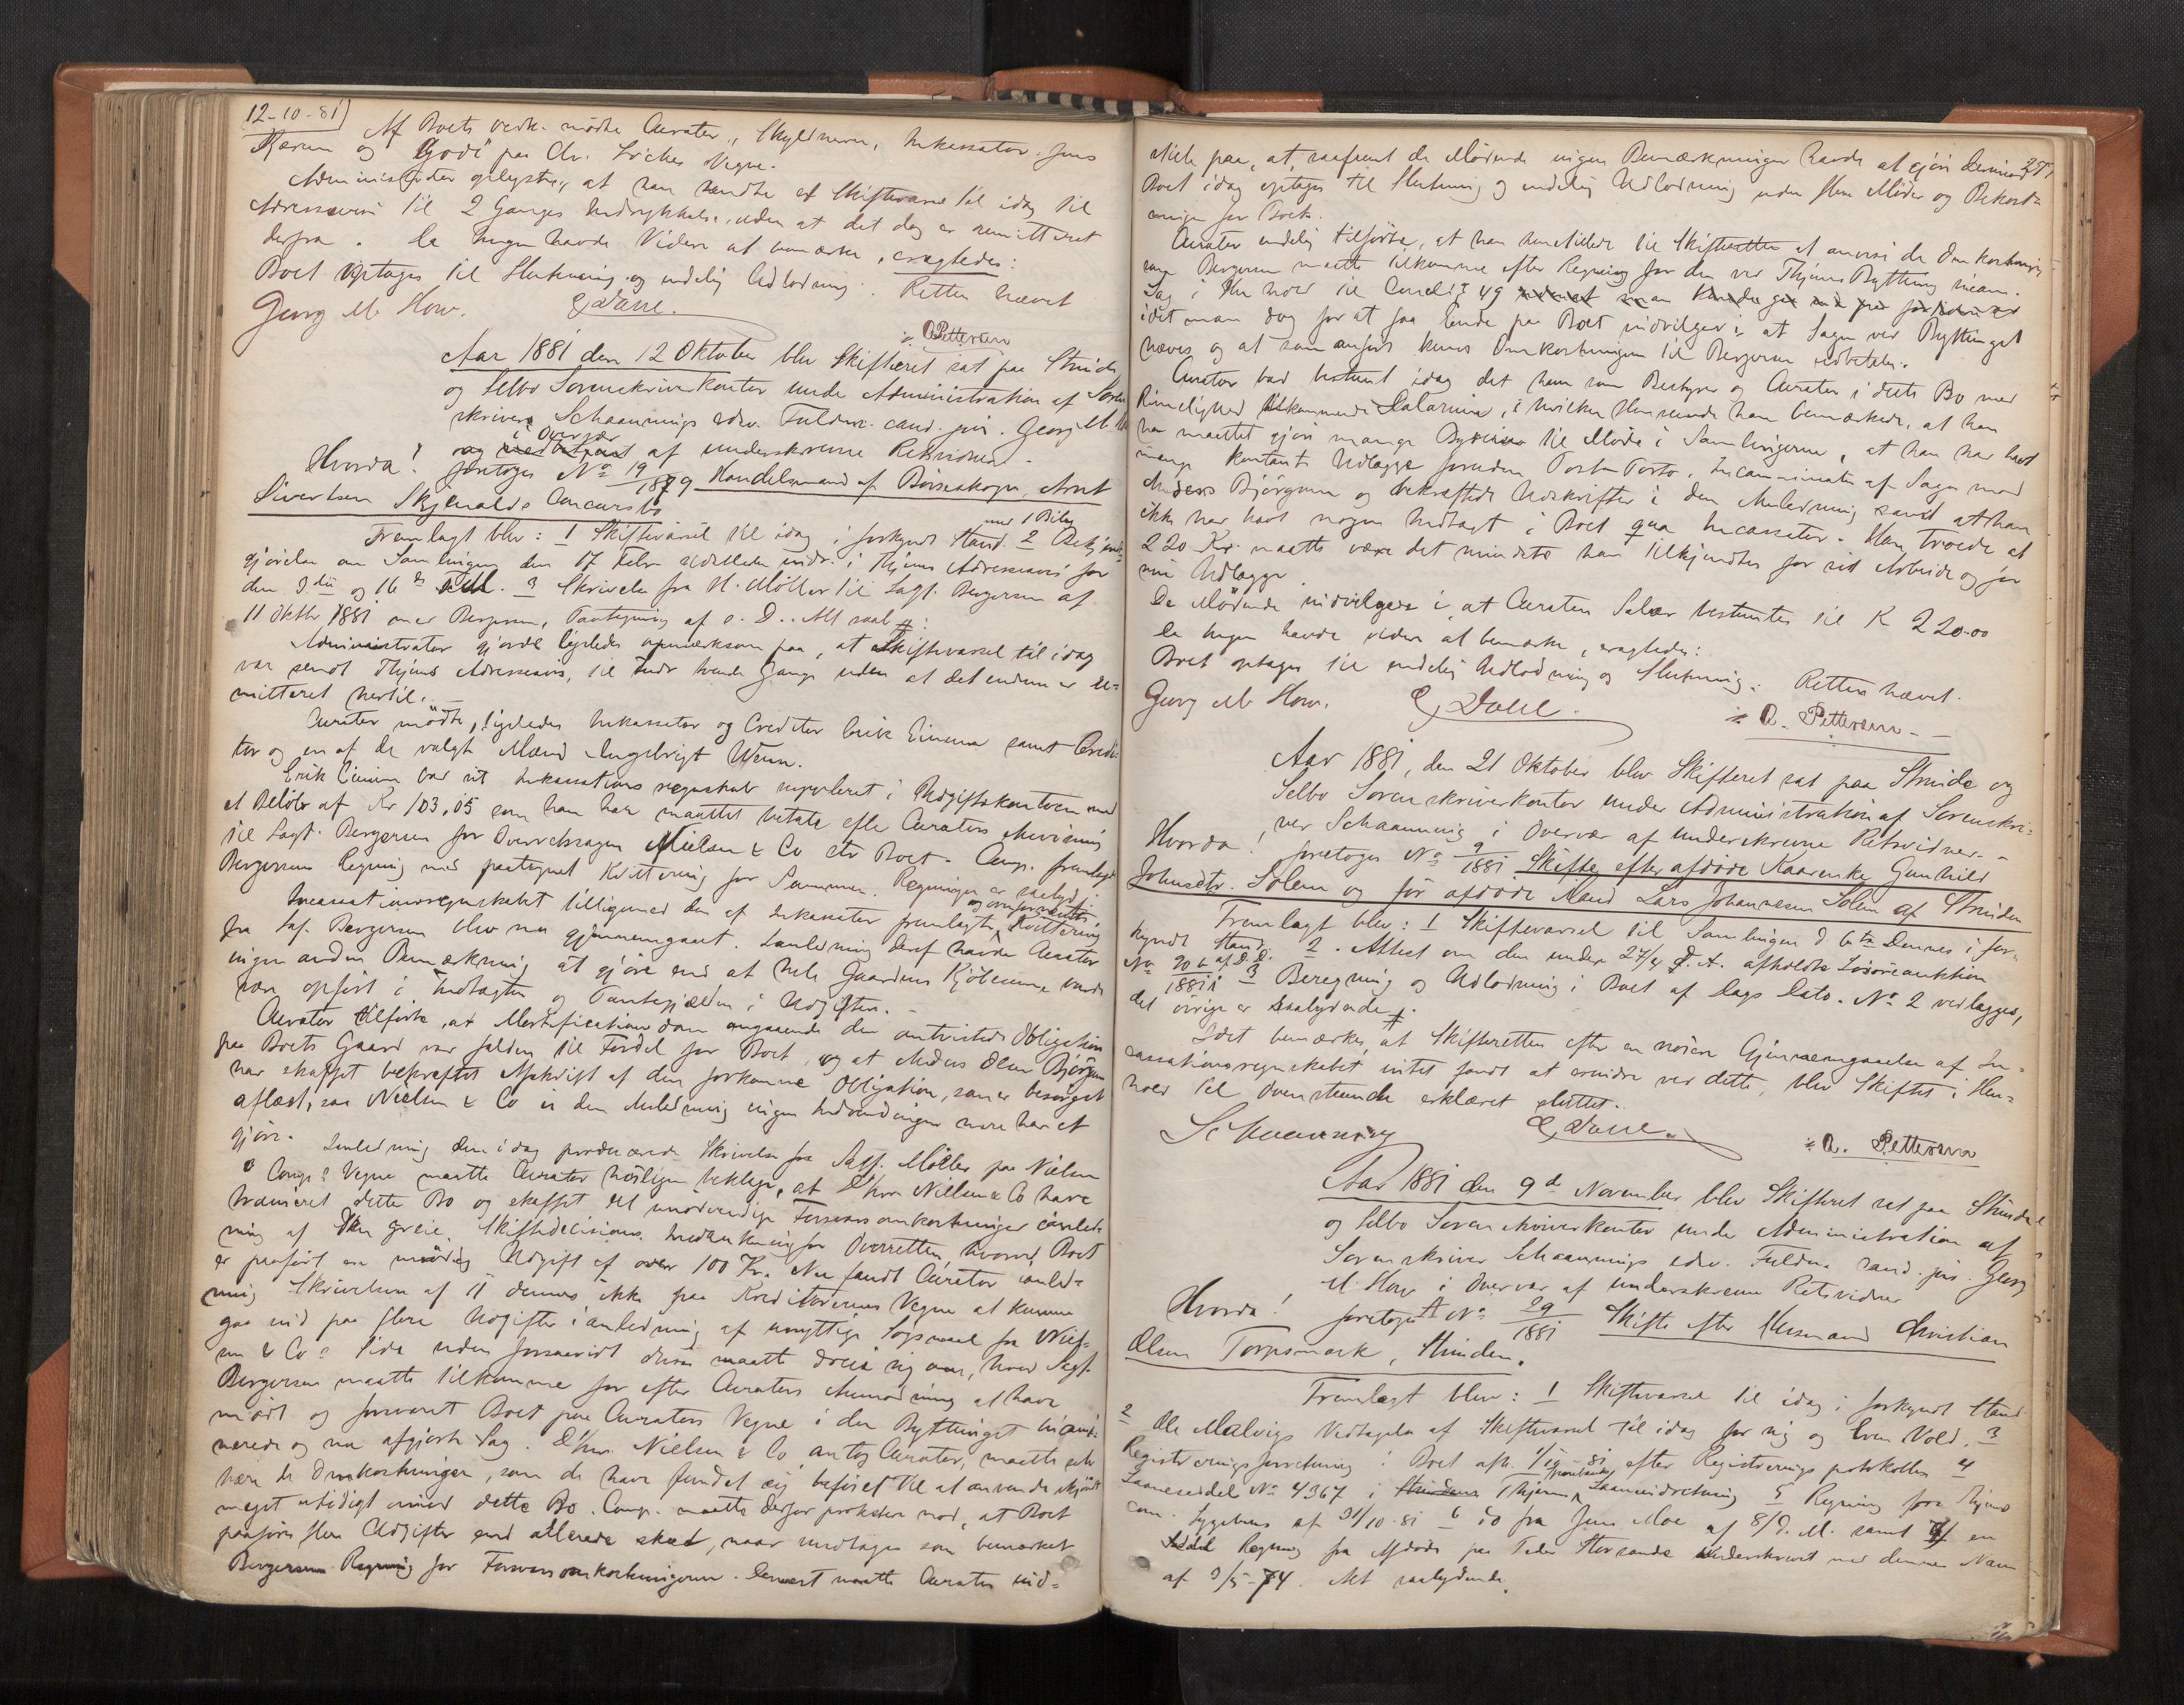 12-10-81]
Af Boets vedk. mødte Curator, Skyldneren, Inkassator Jens
Kjerem og Godø paa Chr. Loches Vegne.
Administrator oplyste, at han sendte et Skiftevarsel til idag til
Adresseavisen til 2 Ganges Indrykkelse, uden at det dog er remitteret
derfra. Da Ingen havde Videre at bemærke, eragtedes:
Boet optages til Slutning og endelig Udlodning. Retten hævet
Georg M. How. E Dahl.
A. Pettersen
Aar 1881 den 12 Oktober blev Skifteret sat paa Strinde
og Selbo Sorenskriverkontor under Administration af Soren
skriver Schaannings edsv. Fuldm. cand. jur. Georg M. How
i Overvær
af underskrevne Retsvidner.
Hvorda! foretoges No 19/1879 Handelsmand af Børseskogn, Arnt
Sivertsen Skjenalds Concursbo
med 1 Bilag
Fremlagt blev: 1 Skiftevarsel til idag i forkyndt Stand. 2 Bekjendt-
gjørelse om Samlingen den 17 Febr. indr. i Thjems Adresseavis for
den 9de og 16de . 3 Skrivelse fra H. Møller til Sagf. Bergersen af
11 Oktbr 1881 med Bergersens Paategning af s. D.. Alt saal #:
Administrator gjorde ligeledes opmærksom paa, at Skiftevarsel til idag
var sendt Thjems Adresseavis, til Indr. tvende Gange uden at det endnu er re-
mitteret hertil. —
Curator mødte, ligeledes Inkassator og Creditor Erik Einum samt Credi-
tor og en af de valgte Mænd Ingebrigt Wenn.
Erik Einum bad sit Inkassations regnskab suppleret i Udgiftskontoen med
et Beløb af Kr 103,05 som han har maattet betale efter Curators Anvisning
til Sagf. Bergersen for Overretssagen Nielsen & Co ctr Boet. Comp. fremlagde
Bergersens Regning med paategnet Kvittering for Summen. Regningen er saalyd:
Incassationsregnskabet tilligemed den af Inkassator fremlagte Kvittering
fra Sagf. Bergersen blev nu gjennemgaaet. I anledning deraf havde Curator
ingen anden Bemærkning at gjøre end at hele Gaardens Kjøbesum burde
være opført i Indtægten og Pantegjælden i Udgiften. —
Curator tilførte, at Mortificationsdom angaaende den omtvistede Obligation
paa Boets Gaard var falden til Fordel for Boet, og at Anders Olsen Bjørgum
har skaffet bekræftet Afskrift af den forkomne Obligation, som er besørget
aflæst, saa Nielsen & Co i den Anledning ingen Indvendinger mere har at
gjøre. I anledning den idag producerede Skrivelse fra Sagf. Møller paa Nielsen
& Comps Vegne maatte Curator høiligen beklage, at D'hrr Nielsen & Co have
træneret dette Bo og skaffet det unødvendige Forsvarsomkostninger i anled-
ning af den greie Skiftedecisions Indankning for Overretten, hvorved Boet
er paaført en unødig Udgift af over 100 Kr. Nu fandt Curator i anled-
ning Skrivelsen af 11 dennes ikke paa Kreditorernes Vegne at kunne
gaa ind paa flere Udgifter i anledning af unyttige Søgsmaal fra Niel-
sen & Cos Side uden forsaavidt disse maatte dreie sig om, hvad Sagf.
Bergersen maatte tilkomme for efter Curators Anmodning at have
mødt og forsvaret Boet paa Curators Vegne i den Bythinget incami-
nerede og nu afgjorte Sag. D'hrr. Nielsen & Co antog Curator, maatte selv
bære de Omkostninger, som de have fundet sig beføiet til at anvende
meget utidigt imod dette Bo. Comp. maatte derfor protestere mod, at Boet
paaføres flere Udgifter end allerede skeet, naar undtages som bemærket
Bergersens Regning for Forsvarsomkostningerne. Dernæst maatte Curator ind-
stille paa, at, saafremt de Mødende ingen Bemærkninger havde at gjøre derimod
Boet idag optages til Slutning og endelig Udlodning uden flere Møder og Bekost-
ninger for Boet.
Curator endelig tilførte, at han henstillede til Skifteretten at anvise de Omkostninger
som Bergersen maatte tilkomme efter Regning for den ved Thjems Bything incam.
Sag i Henhold til Concl. § 49
idet man dog for at faa Ende paa Boet indvilger i, at Sagen ved Bythinget
hæves og at som anført kuns Omkostningerne til Bergersen udbetales.
Curator bad bestemt idag det ham som Bestyrer og Curator i dette Bo med
Rimelighed tilkommende Salarium, i hvilken Henseende han bemærkede, at han
har maattet gjøre mange Byreiser til Møde i Samlingerne, at han har havt
mange kontante Udlægge foruden Post-Porto, Incamination af Sagen mod
Anders Bjørgum og bekræftede Udskrifter i den Anledning samt at han
ikke har havt nogen Indtægt i Boet qua Incassator. Han troede at
220 Kr. maatte være det mindste han tilkjendtes for sit Arbeide og for
sine Udlægge.
De Mødende indvilgede i, at Curators Salær bestemtes til K 220.00
Da Ingen havde videre at bemærke, eragtedes:
Boet optages til endelig Udlodning og Slutning. Retten hævet.
Georg M. How. E Dahl. A. Pettersen
Aar 1881, den 21 Oktober blev Skifteret sat paa Strinde og
Selbo Sorenskriverkontor under Administration af Sorenskri-
ver Schaanning i Overvær af underskrevne Retsvidner. —
Hvorda! foretoges No 9/1881 Skifte efter afdøde Kaarenke Gunhild
Johnsdtr. Solem og før afdøde Mand Lars Johannesen Solem af Strinden
Fremlagt blev: 1 Skiftevarsel til Samlingen d. 6te Dennes i for-
kyndt Stand. 2. Attest om den under 27/4 d. A. afholdte Løsøreauktion
3 Beregning og Udlodning i Boet af Dags Dato. No 2 vedlægges,
det øvrige er saalydende #.
Idet bemærkes, at Skifteretten efter en nøiere Gjennemgaaelse af In-
cassationsregnskabet intet fandt at erindre ved dette, blev Skiftet i Hen-
hold til Ovenstaaende erklæret sluttet.
Schaanning E Dahl. A. Pettersen
Aar 1881 den 9de November blev Skifteret sat paa Strinde
og Selbo Sorenskriverkontor under Administration af
Sorenskriver Schaannings edsv. Fuldm. cand. jur. Georg
M. How i Overvær af underskrevne Retsvidner
Hvorda! foretoges A No 29/1881 Skifte efter Husmand Christian
Olsen Torpsmark, Strinden.
Fremlagt blev: 1 Skiftevarsel til idag i forkyndt Stand
2 Ole Malvigs Vedtagelse af Skiftevarsel til idag for sig og Even Vold. 3
Registreringsforretning i Boet afh. 1/10-81 efter Registreringsprotokollen 4
Laaneseddel No 4367 i Thjems Laaneindretning 5 Regning fra Thjems
com. Sygehus af 31/10-81 6 do fra Jens Moe af 8/d. M. samt 7 en
Regning fra Afdøde paa Peder Storsande underskrevet med dennes Navn
af 9/5-74. Alt saalydende.